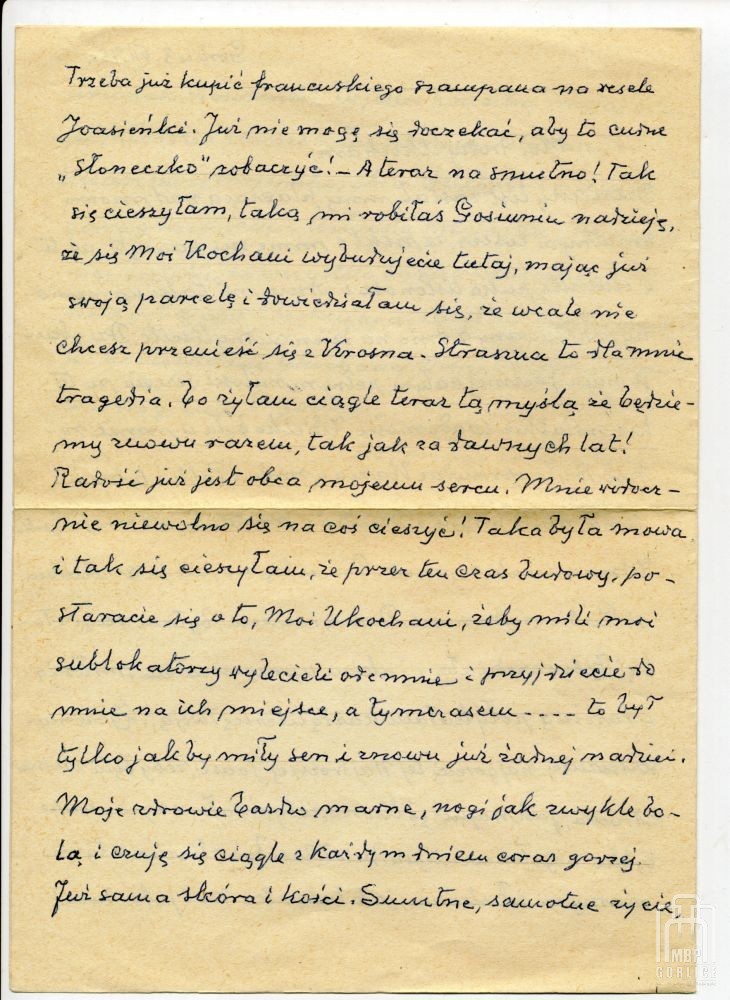 Trzeba już kupić francuskiego szampana na wesele
Joasieńki. Już nie mogę się doczekać, aby to cudne
„Słoneczko” zobaczyć! – A teraz na smutno! Tak
się cieszyłam, taką mi robiłaś Gosiuniu nadzieję,
że się Moi Kochani wybudujecie tutaj, mając już
swoją parcelę i dowiedziałam się, że wcale nie
chcesz przenieść się z Krosna. Straszna to dla mnie
tragedia. Bo żyłam ciągle teraz tą myślą że będzie-
my znowu razem, tak jak za dawnych lat!
Radość już jest obca mojemu sercu. Mnie widocz-
nie niewolno się na coś cieszyć! Taka była mowa
i tak się cieszyłam, że przez ten czas budowy, po-
staracie się o to, Moi Ukochani, żeby mili moi
sublokatorzy wylecieli odemnie i przyjdziecie do
mnie na ich miejsce, a tymczasem .... to był
tylko jakby miły sen i znowu już żadnej nadziei.
Moje zdrowie bardzo marne, nogi jak zwykle bo-
lą i czuję się ciągle z każdym dniem coraz gorzej.
Już sama skóra i kości. Smutne, samotne życie,
MBP
GORLICE